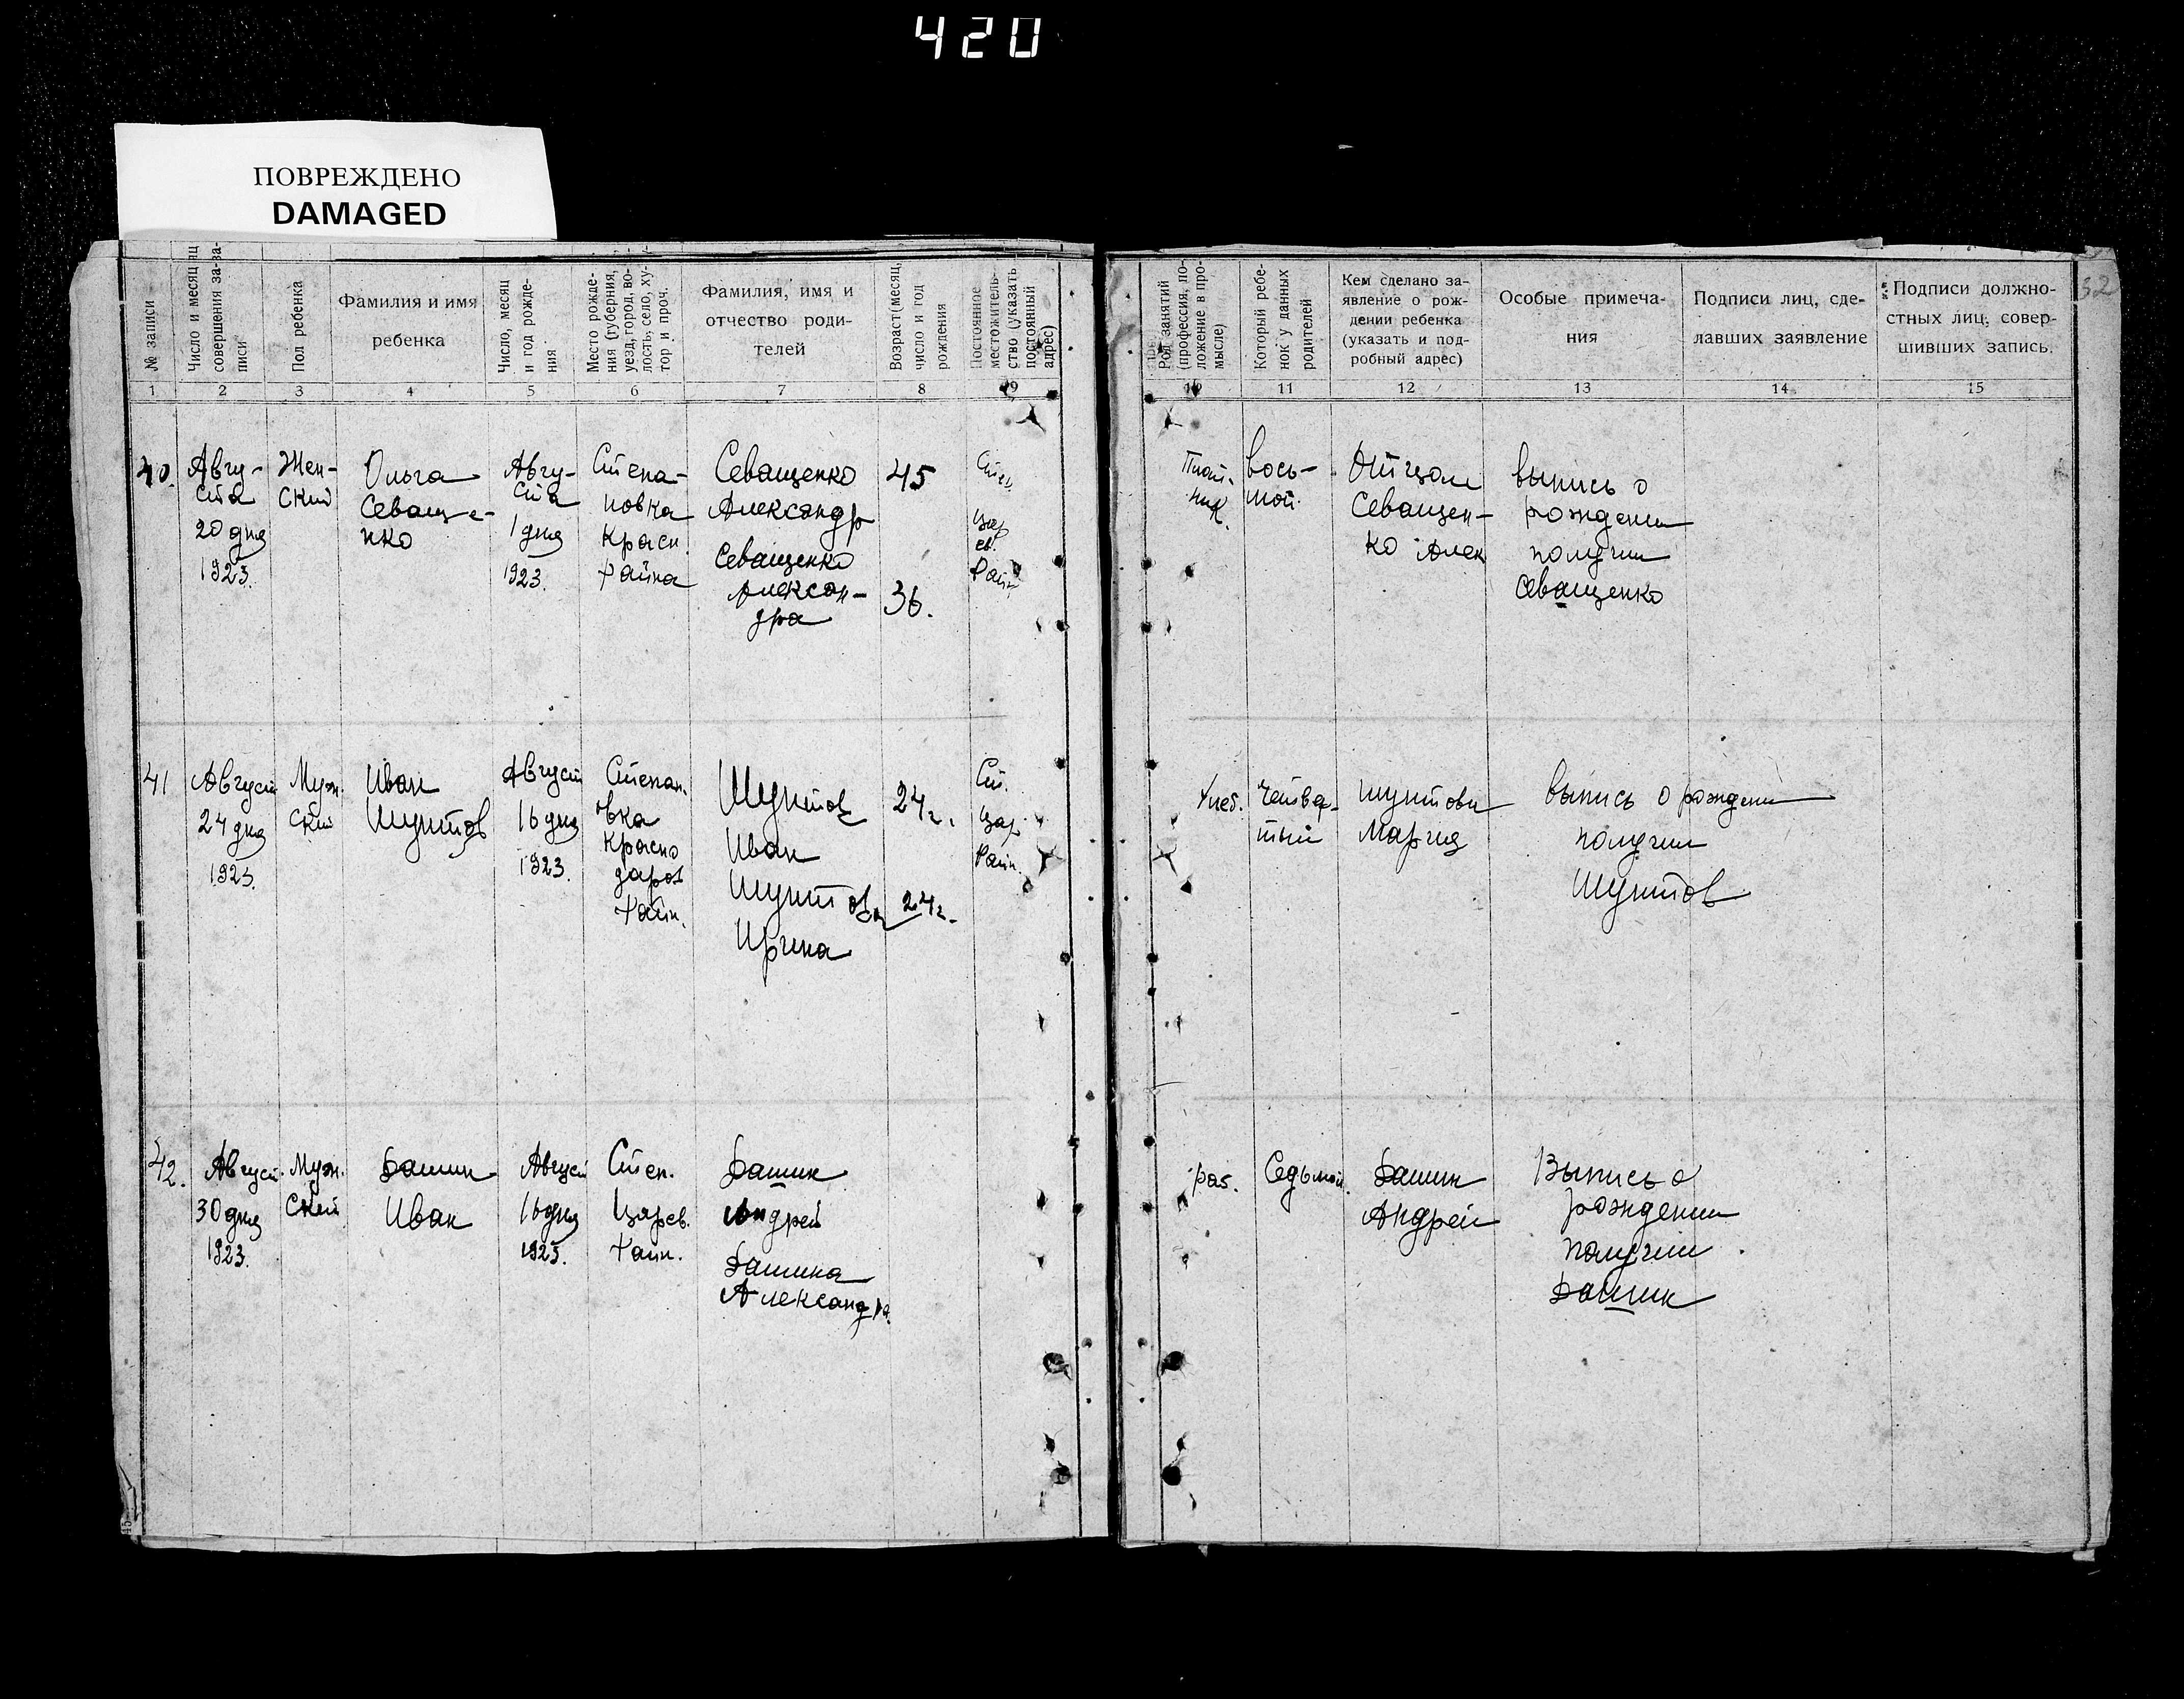 420
ПОВРЕЖДЕНО
DAMAGED
№ записи
Число и месяц
совершения за-
писи
Пол ребенка
Фамилия и имя
ребенка
Число, месяц
и год рожде-
ния
Место рожде-
ния (губерния,
уезд, город, во-
лость, село, ху-
тор и проч.
Фамилия, имя и
отчество роди-
телей
Возраст (месяц,
число и год
рождения
Постоянное
местожитель-
ство (указать
постоянный
адрес)
Род занятий
(профессия, по-
ложение в про-
мысле)
Который ребе-
нок у данных
родителей
Кем сделано за-
явление о рож-
дении ребенка
(указать и под-
робный адрес)
Особые примеча-
ния
Подписи лиц, сде-
лавших заявление
Подписи должно-
стных лиц, совер-
шивших запись.
32
1 2 3 4 5 6 7 8 9 10 11 12 13 14 15
40.
Авгу-
ста
20 дня
1923.
Жен-
ский
Ольга
Севаще-
нко
Авгу-
ста
1 дня
1923.
Степа-
новка
Красн.
района
Севащенко
Александр
Севащенко
Алексан-
дра
45
36.
Степ.
Цар
ев.
Район
Плот-
ник.
вось-
мой.
Отцом
Севащен-
ко Алек
выпись о
рождении
получил
Севащенко
41
Август
24 дня
1923.
Муж.
ский
Иван
Шунтов
Август
16 дня
1923.
Степан.
овка
Красно
даров
райн.
Шунтов
Иван
Шунтова
Ирина
24 г.
24 г.
Ст.
Цар
Райн.
Хлеб.
четвер-
тый
Шунтова
Мария
выпись о рождении
получил
Шунтов
42.
Август
30 дня
1923.
Муж.
ский
Башик
Иван
Август
16 дня
1923.
Степ.
Царев.
райн.
Башик
Андрей
Башика
Александра.
раб.
Седьмой.
Башик
Андрей
Выпись о
рождении
получил
Башик